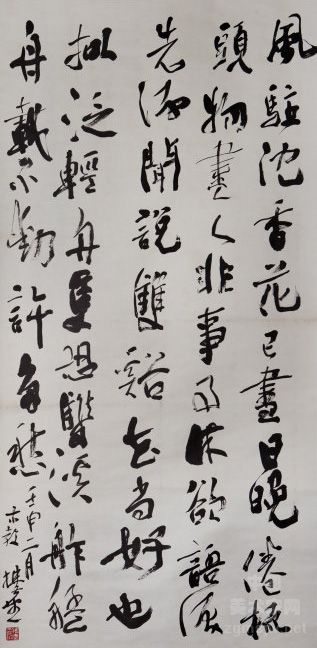 風駐沈香花已盡日晚倦梳
頭物盡人非事事休欲語淚
先流聞說雙谿春尚好也
擬泛輕舟隻恐雙溪舴艋
舟載不動許多愁壬申二月